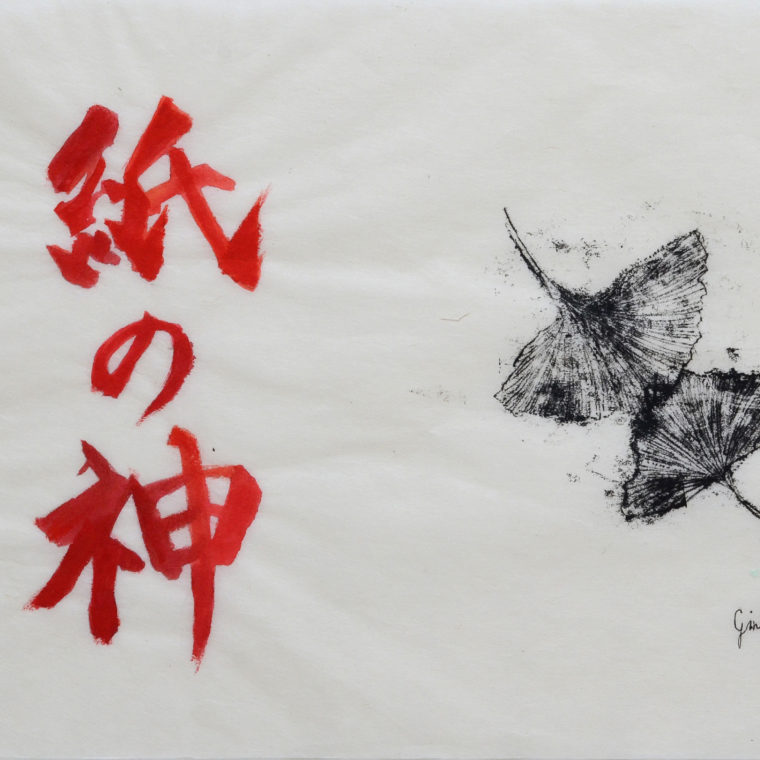 紙の神
Gin